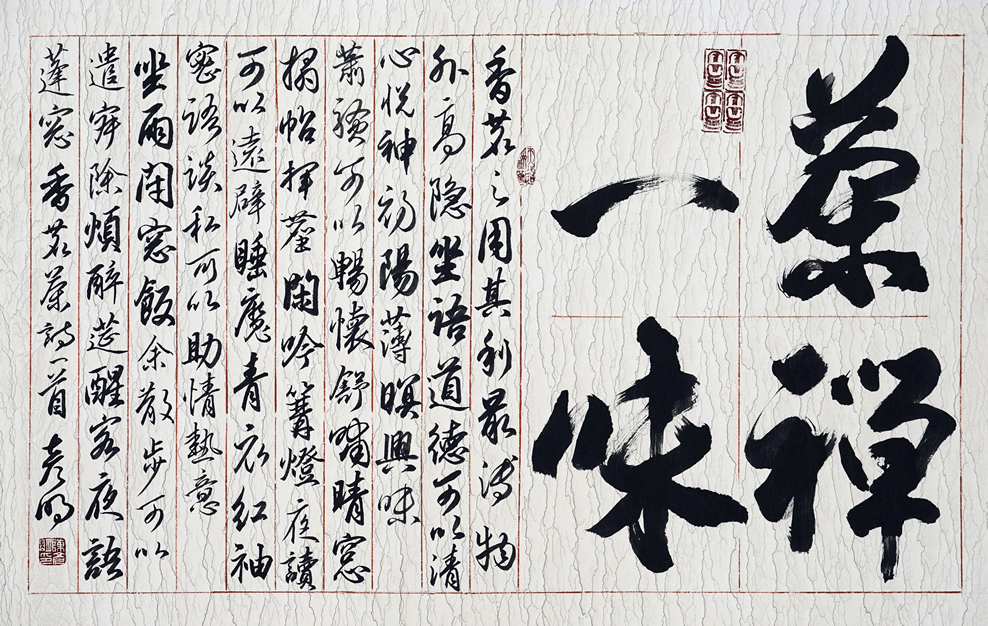 茶禅
一味
香茗之用其利最溥物
外高隐坐语道德可以清
心悦神初陽薄暝興味
蕭骚可以暢懷舒嘯晴窓
搨帖揮麈閑吟篝燈夜讀
可以遠辟睡魔青衣红袖
密语谈私可以助情熱意
坐雨闭窓飯余散步可以
遣寂除煩醉筵醒客夜語
蓬窓香茗茶诗一首 彦明